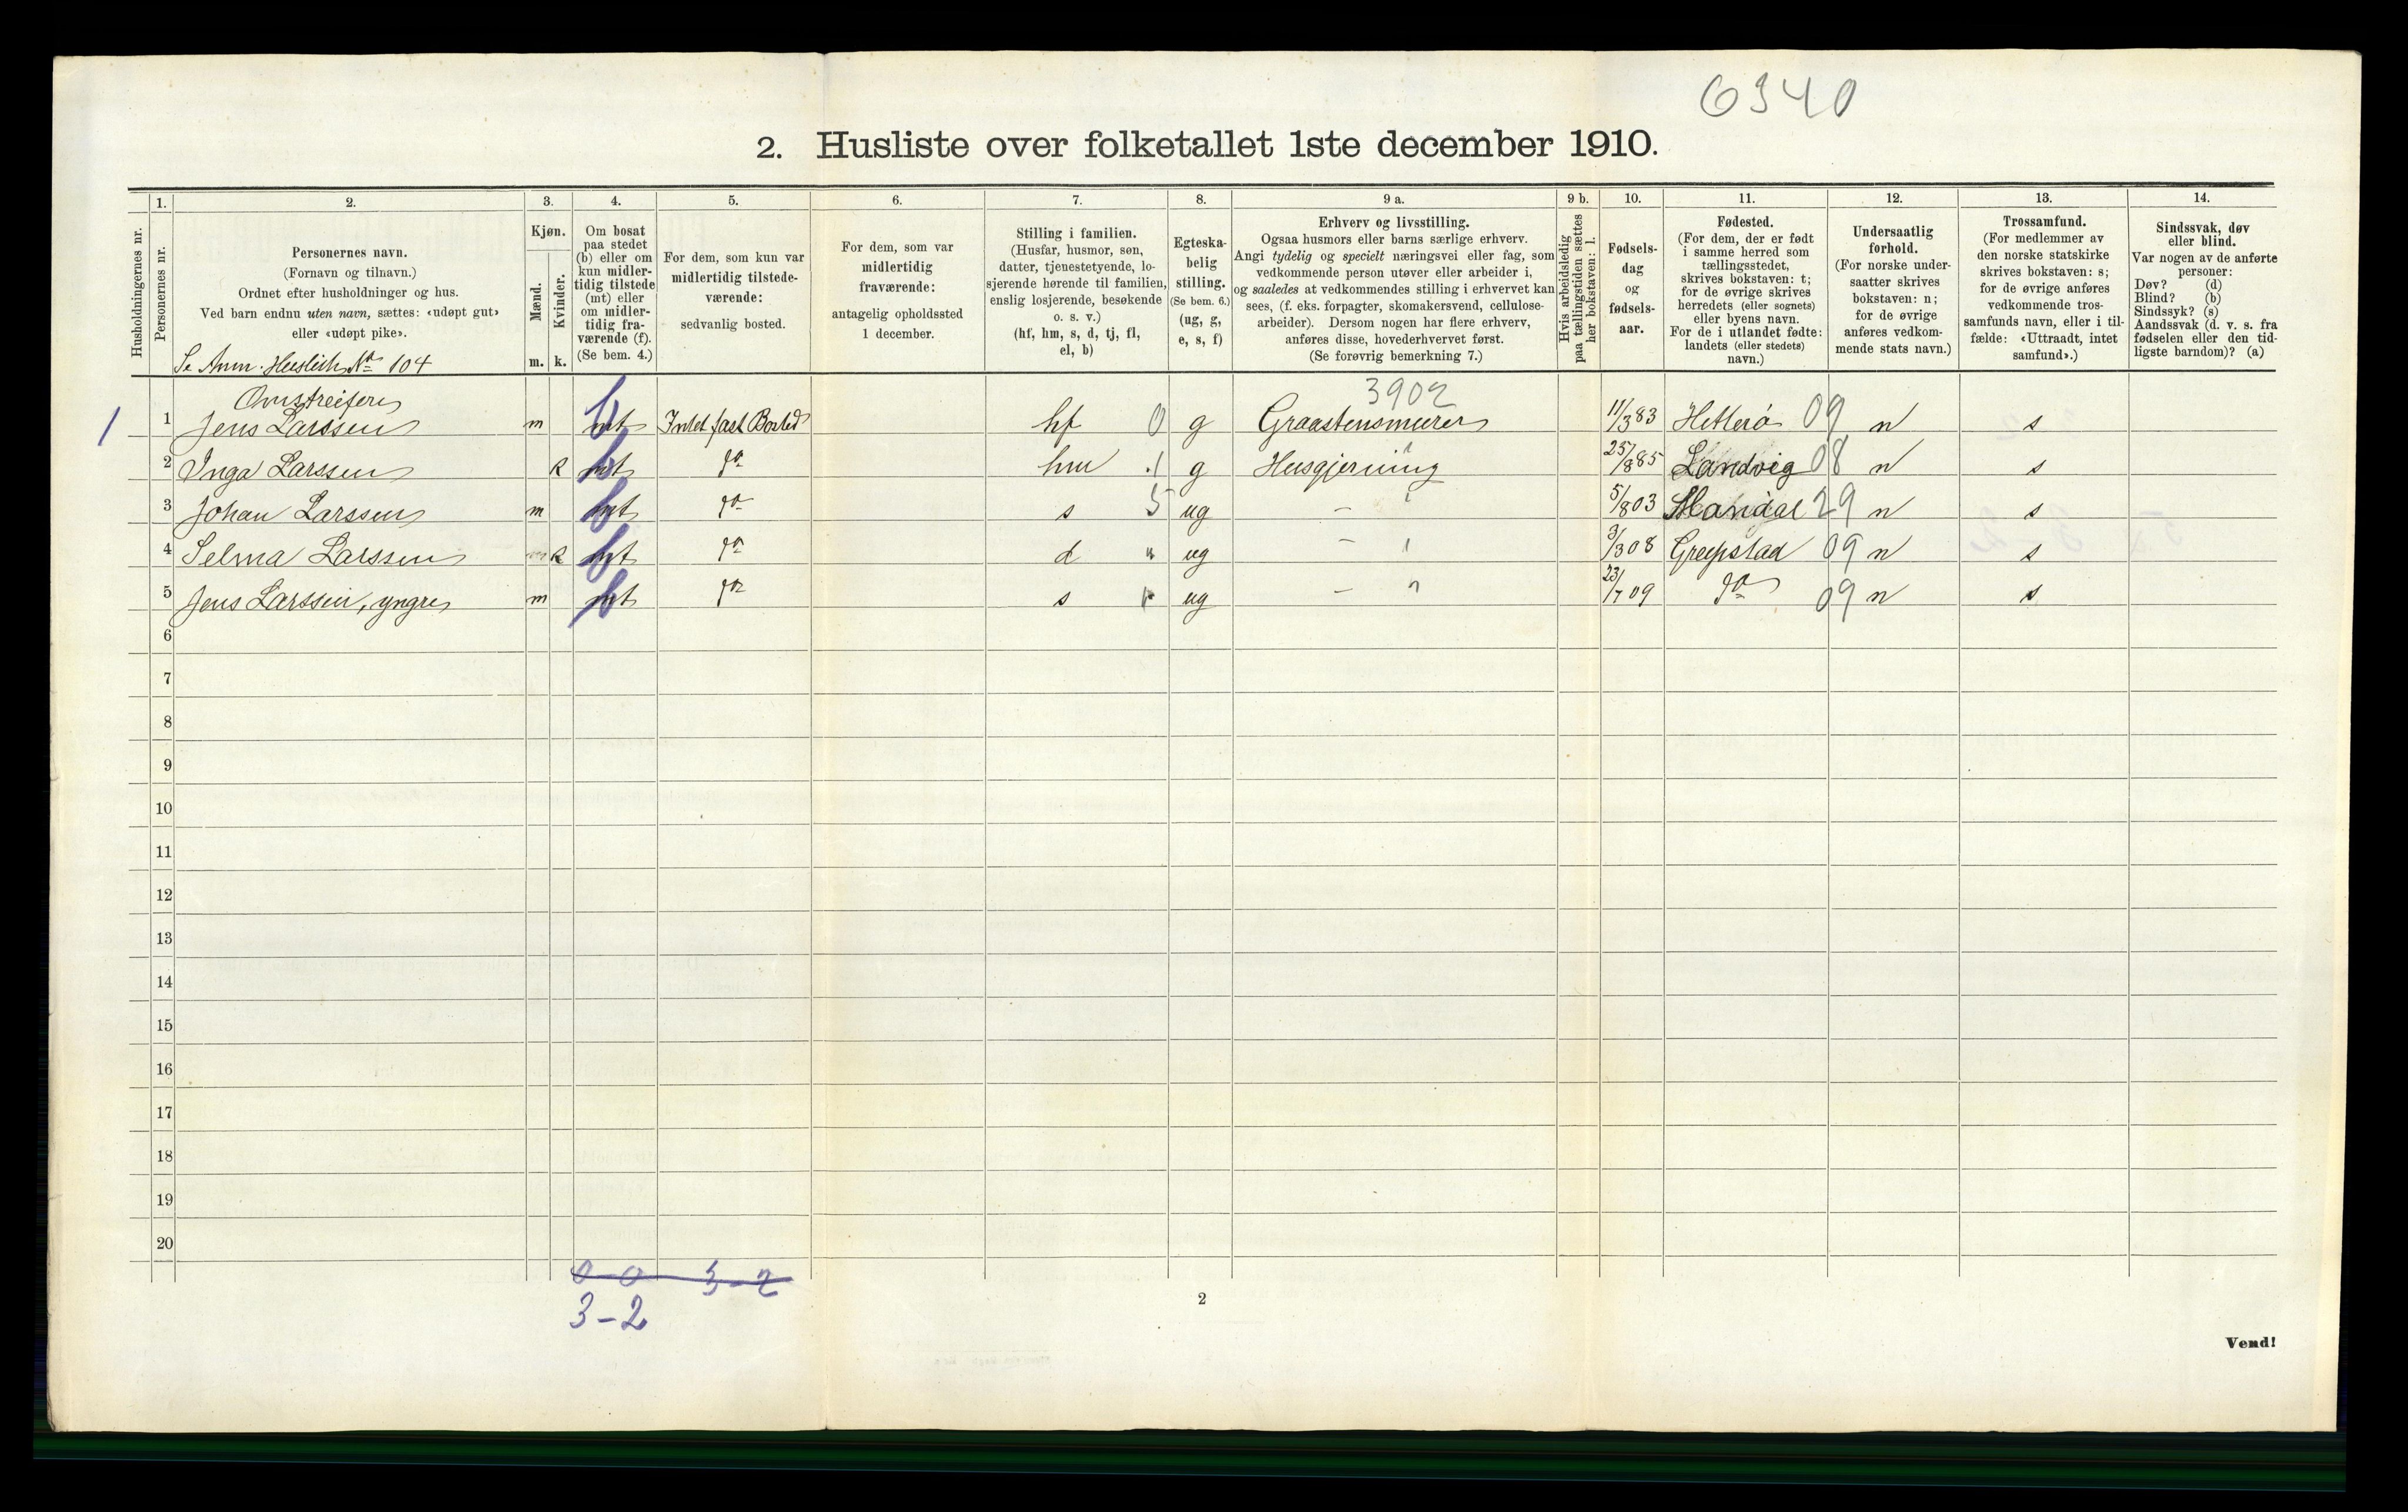 6340
2. Husliste over folketallet 1ste december 1910.
1. 2. 3. 4. 5. 6. 7. 8. 9 a. 9 b. 10. 11. 12. 13. 14.
Husholdningernes nr.
Personernes nr.
Personernes navn.
(Fornavn og tilnavn.)
Ordnet efter husholdninger og hus.
Ved barn endnu uten navn, sættes: «udøpt gut»
eller «udøpt pike».
Se Anm. Huslist No 104
Kjøn.
Mænd.
Kvinder.
m. k.
Om bosat
paa stedet
(b) eller om
kun midler-
tidig tilstede
(mt) eller
om midler-
tidig fra-
værende (f).
(Se bem. 4.)
For dem, som kun var
midlertidig tilstede-
værende:
sedvanlig bosted.
For dem, som var
midlertidig
fraværende:
antagelig opholdssted
1 december.
Stilling i familien.
(Husfar, husmor, søn,
datter, tjenestetyende, lo-
sjerende hørende til familien,
enslig losjerende, besøkende
o. s. v.)
(hf, hm, s, d, tj, fl,
el, b)
Egteska-
belig
stilling.
(Se bem. 6.)
(ug, g,
e, s, f)
Erhverv og livsstilling.
Ogsaa husmors eller barns særlige erhverv.
Angi tydelig og specielt næringsvei eller fag, som
vedkommende person utøver eller arbeider i,
og saaledes at vedkommendes stilling i erhvervet kan
sees, (f. eks. forpagter, skomakersvend, cellulose-
arbeider). Dersom nogen har flere erhverv,
anføres disse, hovederhvervet først.
(Se forøvrig bemerkning 7.)
Hvis arbeidsledig
paa tællingstiden sættes
her bokstaven: l.
Fødsels-
dag
og
fødsels-
aar.
Fødested.
(For dem, der er født
i samme herred som
tællingsstedet,
skrives bokstaven: t;
for de øvrige skrives
herredets (eller sognets)
eller byens navn.
For de i utlandet fødte:
landets (eller stedets)
navn.)
Undersaatlig
forhold.
(For norske under-
saatter skrives
bokstaven: n;
for de øvrige
anføres vedkom-
mende stats navn.)
Trossamfund.
(For medlemmer av
den norske statskirke
skrives bokstaven: s;
for de øvrige anføres
vedkommende tros-
samfunds navn, eller i til-
fælde: «Uttraadt, intet
samfund».)
Sindssvak, døv
eller blind.
Var nogen av de anførte
personer:
Døv? (d)
Blind? (b)
Sindssyk? (s)
Aandssvak (d. v. s. fra
fødselen eller den tid-
ligste barndom)? (a)
Omstreifere 3902
1 1 Jens Larssen m mt b Intet fast Bosted hf 0 g Graastensmurer 11/3 83 Hitterø 09 n s
2 Inga Larssen k mt b do hm 1 g Husgjerning 25/8 85 Landvig 08 n s
3 Johan Larssen m mt b do s 5 ug - " 5/8 03 Mandal 29 n s
4 Selma Larssen k mt b do d " ug - " 3/3 08 Greipstad 09 n s
5 Jens Larssen, yngre m mt b do s " ug - " 23/7 09 do 09 n s
6
7
8
9
10
11
12
13
14
15
16
17
18
19
20
0-0 3-2
3-2
2
Vend!